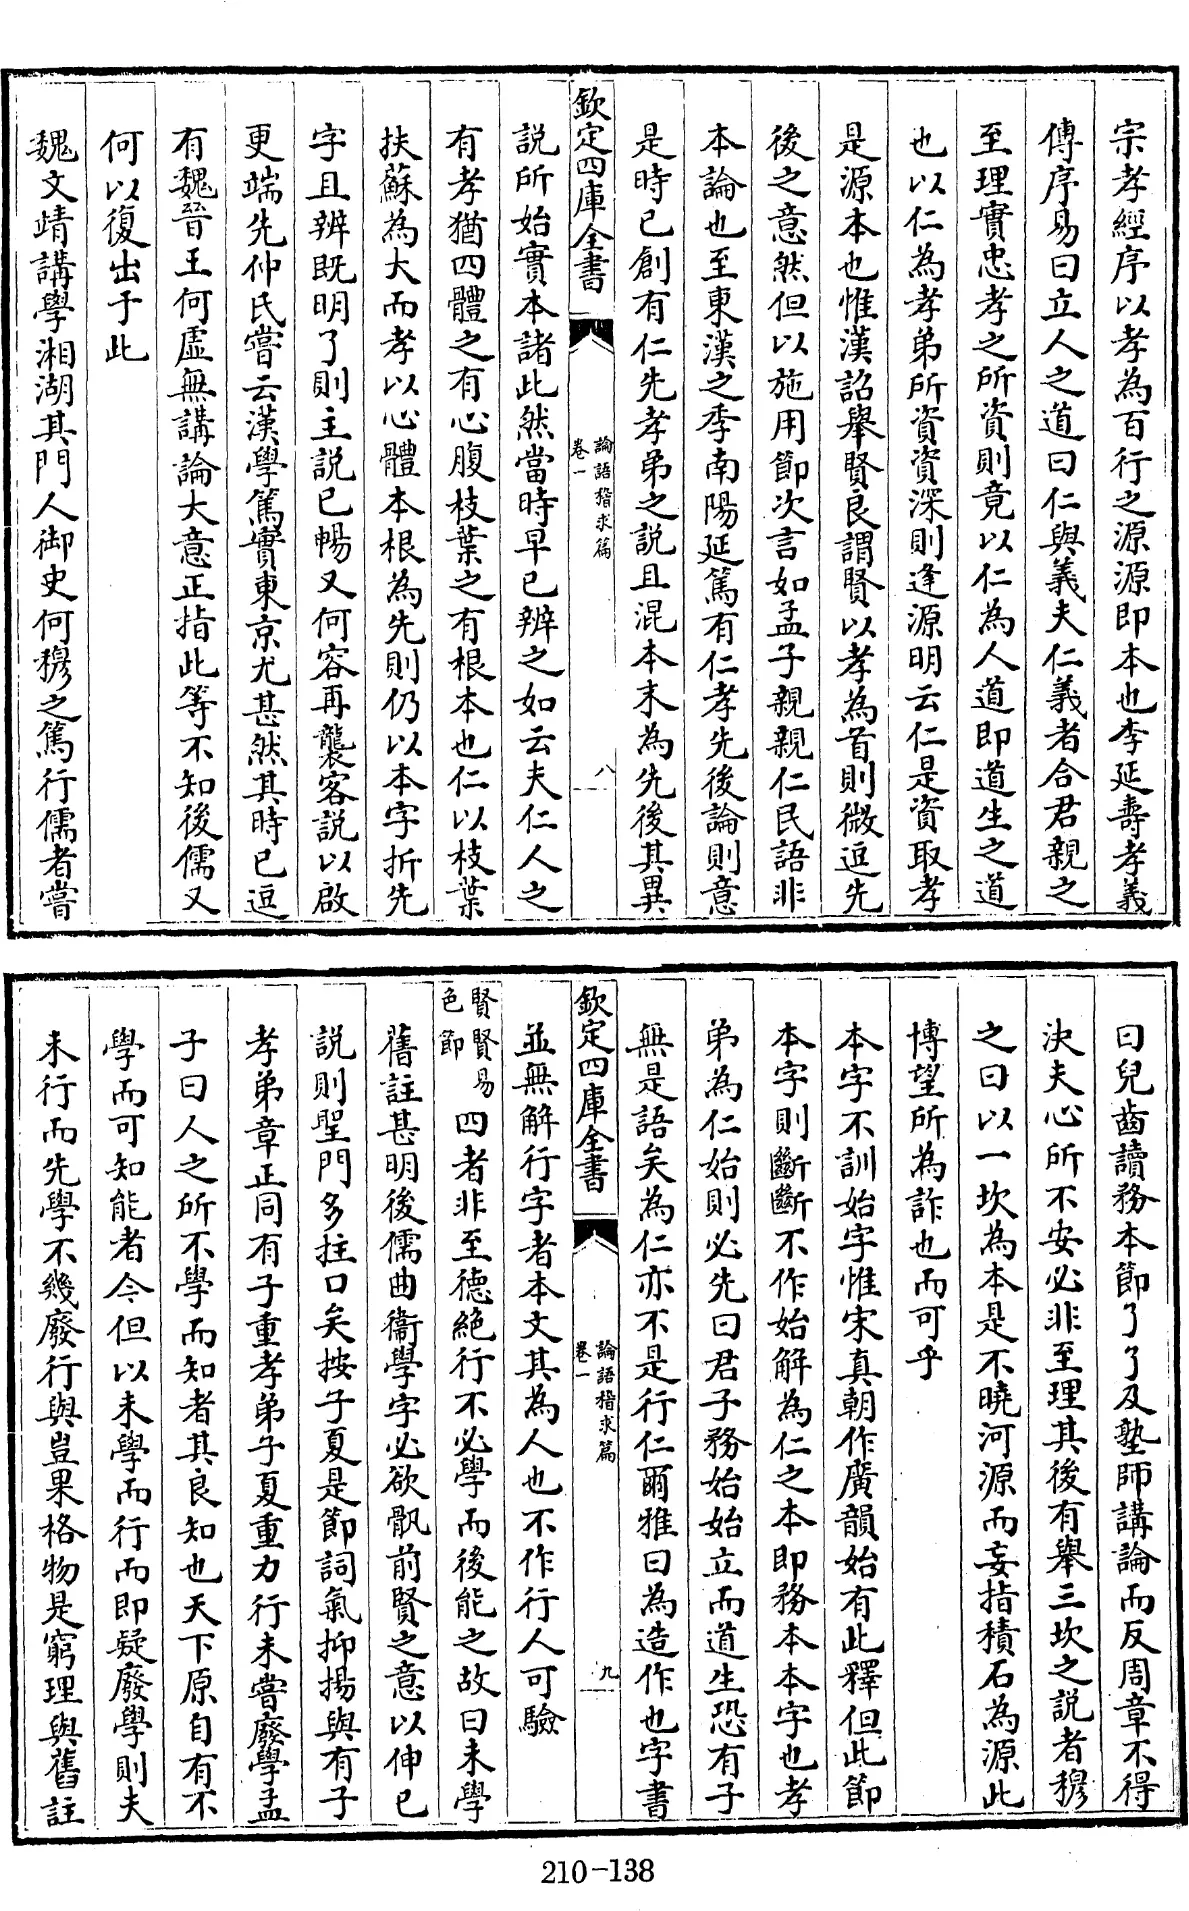 宗孝經序以孝為百行之源源即本也李延壽孝義
傳序易曰立人之道曰仁與義夫仁義者合君親之
至理實忠孝之所資則竟以仁為人道即道生之道
也以仁為孝弟所資資深則逢源明云仁是資取孝
是源本也惟漢詔舉賢良謂賢以孝為首則微逗先
後之意然但以施用節次言如孟子親親仁民語非
本論也至東漢之季南陽延篤有仁孝先後論則意
是時已創有仁先孝弟之説且混本末為先後其異
欽定四庫全書
論語稽求篇
卷一
八
説所始實本諸此然當時早已辨之如云夫仁人之
有孝猶四體之有心腹枝葉之有根本也仁以枝葉
扶蘇為大而孝以心體本根為先則仍以本字折先
字且辨既明了則主説已暢又何容再襲客説以啟
更端先仲氏嘗云漢學篤實東京尤甚然其時已逗
有魏晉王何虛無講論大意正指此等不知後儒又
何以復出于此
魏文靖講學湘湖其門人御史何穆之篤行儒者嘗
曰兒齒讀務本節了了及塾師講論而反周章不得
決夫心所不安必非至理其後有舉三坎之説者穆
之曰以一坎為本是不曉河源而妄指積石為源此
博望所為詐也而可乎
本字不訓始字惟宋真朝作廣韻始有此釋但此節
本字則斷斷不作始解為仁之本即務本本字也孝
弟為仁始則必先曰君子務始始立而道生恐有子
無是語矣為仁亦不是行仁爾雅曰為造作也字書
欽定四庫全書
論語稽求篇
卷一
九
並無解行字者本文其為人也不作行人可驗
賢賢易
色節
四者非至德絕行不必學而後能之故曰未學
舊註甚明後儒曲衞學字必欲骫前賢之意以伸已
説則聖門多拄口矣按子夏是節詞氣抑揚與有子
孝弟章正同有子重孝弟子夏重力行未嘗廢學孟
子曰人之所不學而知者其良知也天下原自有不
學而可知能者今但以未學而行而即疑廢學則夫
未行而先學不幾廢行與豈果格物是窮理與舊註
210-138